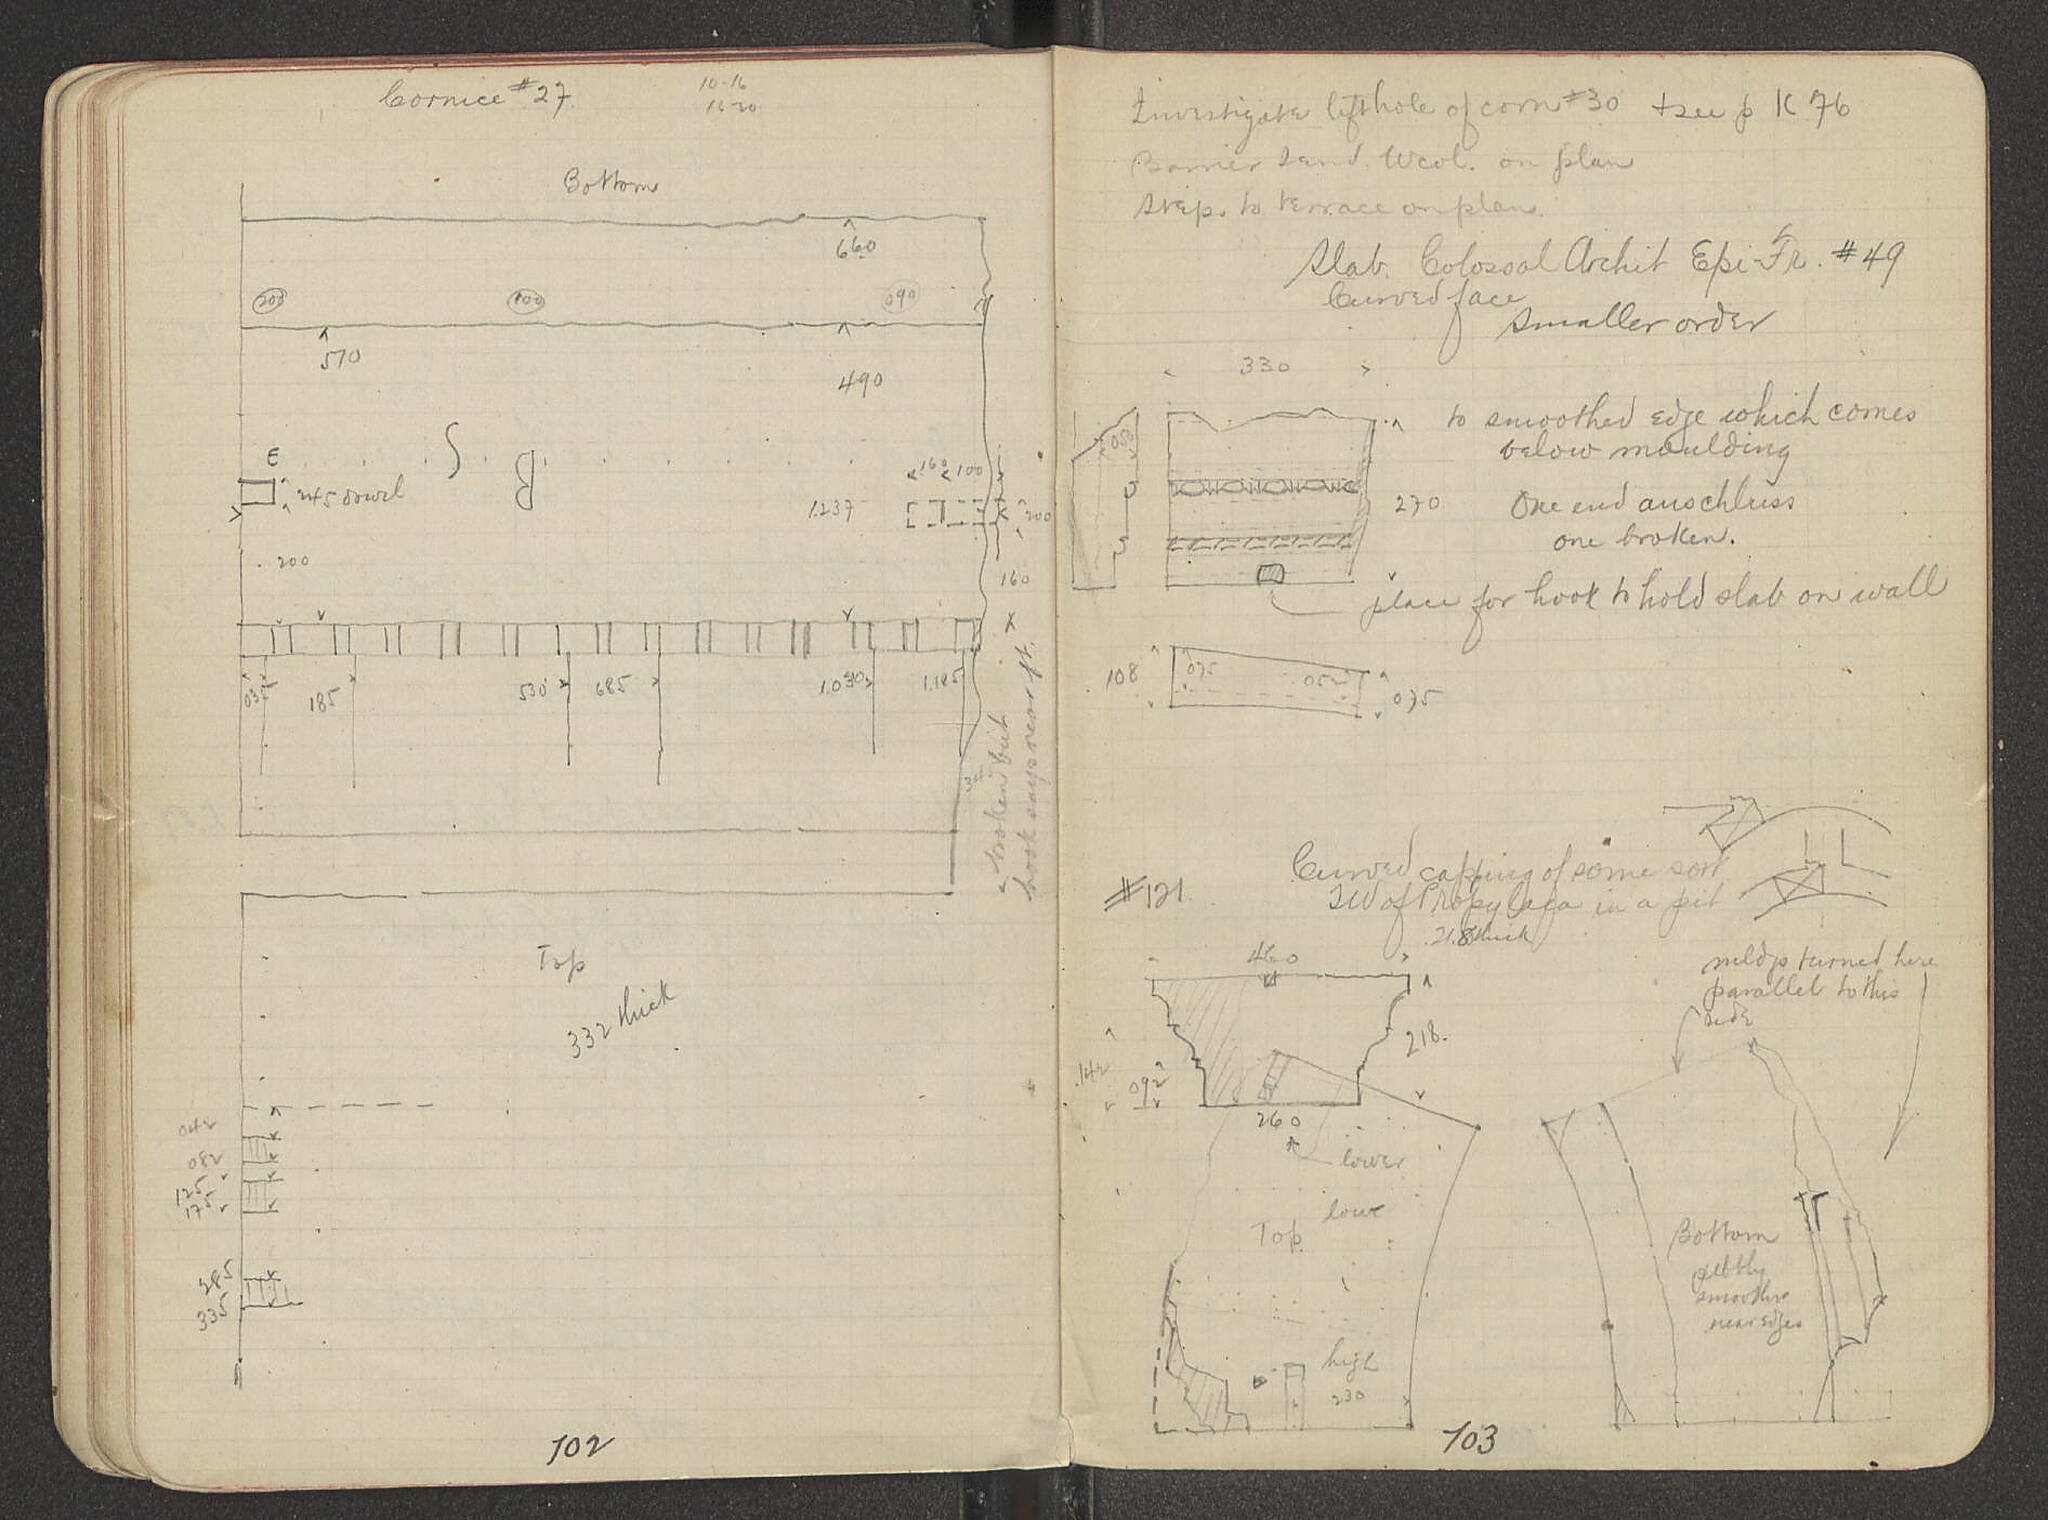 Cornice #27
10-16
16-20
Bottom
660
200
100
090
570
490
E
S
B
245 dowel
160
100
1.237
200
200
160
X
035
185
530
685
1.030
1.185
broken but
book says near ft.
Top
332 thick
042
082
125
175
285
335
102
Investigate left hole of corn #30 + see p K 76
Barrier on plan
Steps to terrace on plan.
Slab. Colossal Archit Epi-Fr. #49
Curved face
Smaller order
330
050
to smoothed edge which comes
below moulding
270
One end anschluss
one broken.
place for hook to hold slab on wall
108
075
052
075
Curved capping of some sort
#121
SW of Propylaea in a pit
21.8 thick
460
mldgs turned here
parallel to this
side
218.
.142
092
260
lower
lower
Top
Bottom
pebbly
smoother
near edges
high
230
103